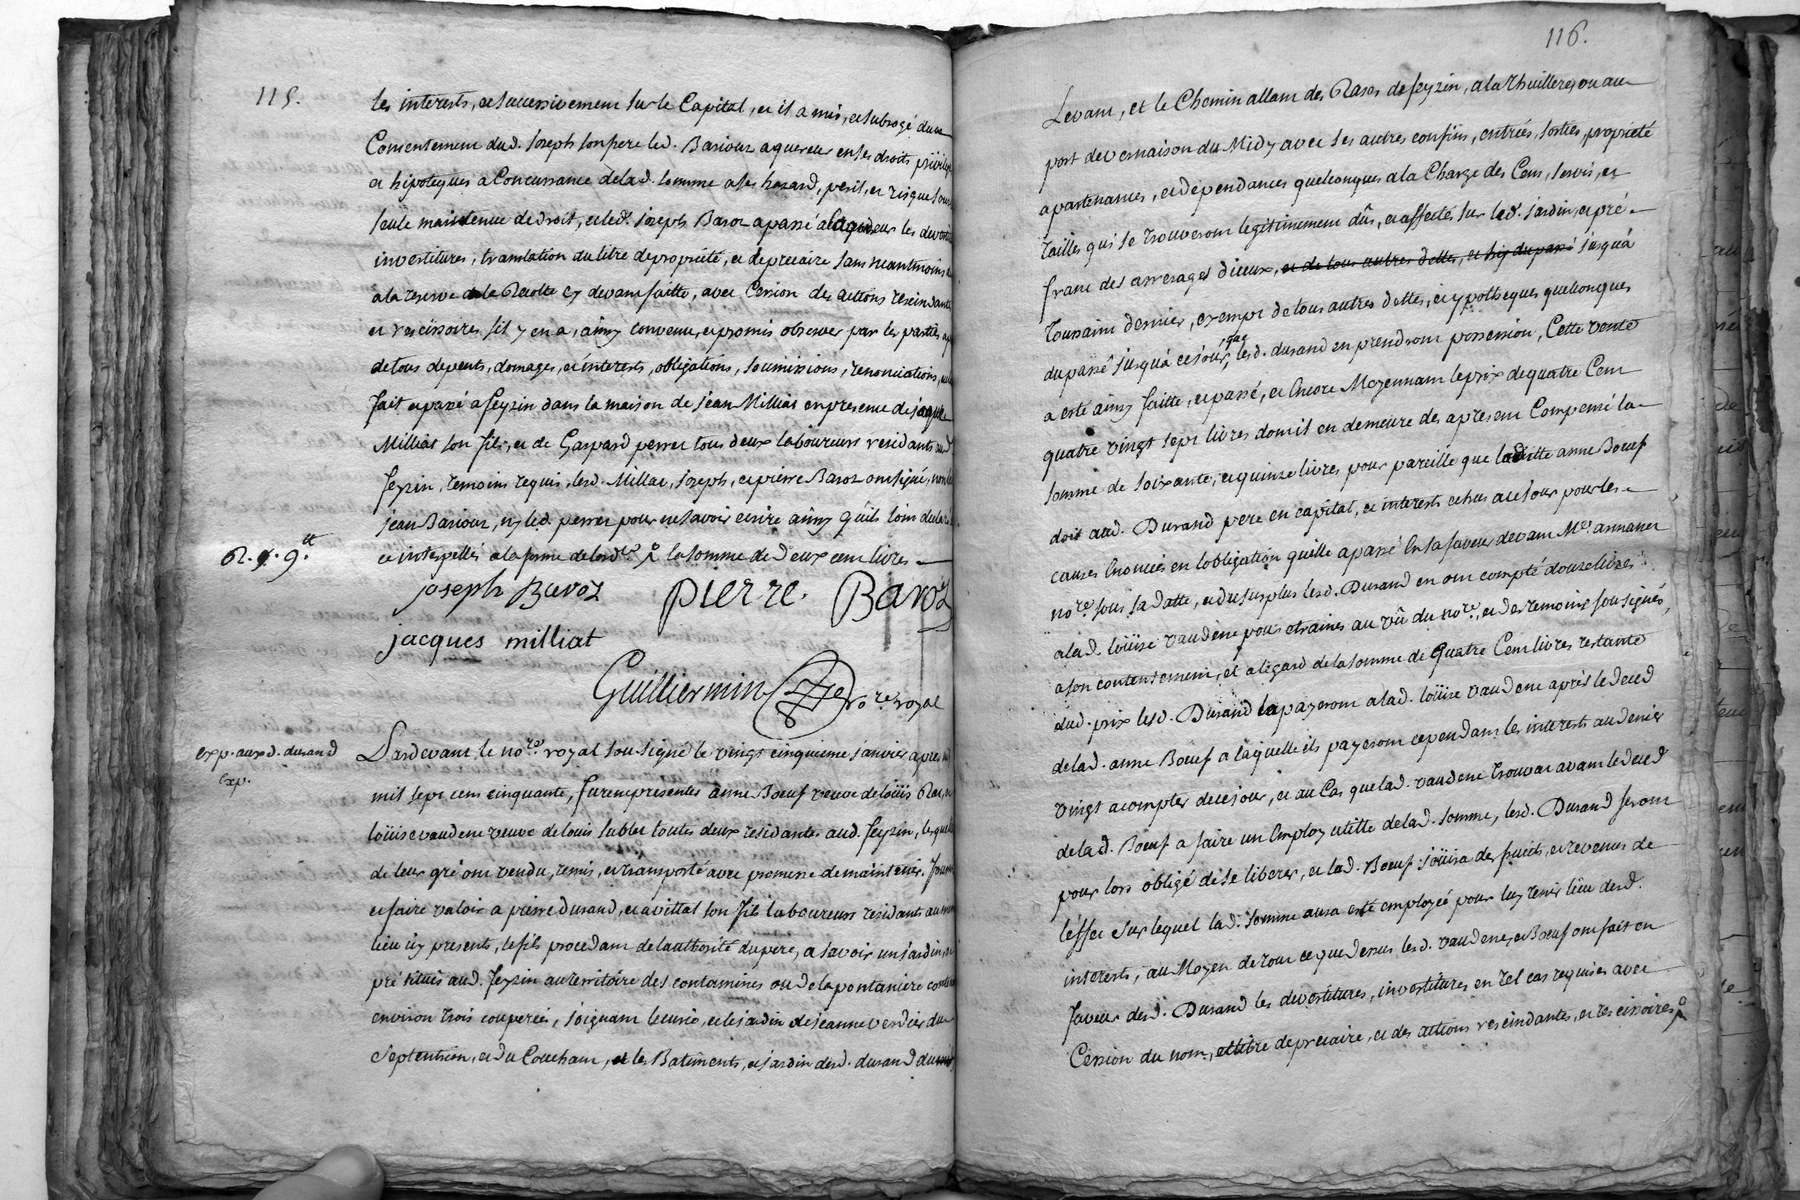 115.
les interests, et successivement sur le Capital, et il a mis, et subrogé du
Consentement dud. Joseph son pere led. Bariour aquereur en ses droits privileges
et hipoteques a Concurrance de lad. somme a ses hazard, peril, et risque sous
seule maintenue de droit, et led. Joseph Baroz a passé a l'aquereur les devestitures
investitures, translation du titre de propriété, et de precaire sans neantmoins
a la reserve de la Recolte cy devant faitte, avec Cession des actions rescindantes
et rescissoires s'il y en a, ainsy convenu, et promis observer par les parties a
de tous depents, domages, et interests, obligations, soumissions, renonciations,
fait et passé a feyzin dans la maison de jean Milliat en presence de jacque
Milliat son fils, et de Gaspard perret tous deux laboureurs residants aud
feyzin, temoins requis, lesd. Milliat, Joseph, et pierre Baroz ont signé, non led
jean Bariour, ny led. perret pour ne savoir ecrire ainsy qu'ils l'ont declaré
et interpellés a la forme de lord.ce p.r la somme de deux cent livres
R. 9.tt
joseph Baroz pierre. Baroz
jacques milliat
Guilliermin no.re royal
exp. aux d. durand
exp.
Pardevant le no.re royal sousigné le vingt cinquieme janvier apres midi
mil sept cent cinquante, furent presentes anne Boeuf veuve de loüis
loüise vaudene veuve de louis sublet toutes deux residantes aud. feyzin, lesquelles
de leur gré ont vendu, remis, et transporté avec promesse de maintenir,
et faire valoir a pierre durand, et a vittal son fils laboureurs residants au meme
lieu icy presents, le fils procedant de l'authorité du pere, a savoir un jardin, et
pré situés aud. feyzin au territoire des contamines ou de la pontaniere contenant
environ trois couperées, joignant le curé, et le jardin de jeanne verdier du
septention, et du Couchant, et les Batiments, et jardin desd. durand du
116.
Levant, et le Chemin allant des Razes de feyzin, a la Thuilliere, ou au
port de vernaison du Midy avec ses autres confins, entrées, sorties, propriété
apartenances, et dependances quelconques a la Charge des Cens, servis, et
tailles qui se trouveront legitimement dûs, et affectés sur led. jardin, et pré
franc des arrerages d'iceux, et de tous autres dettes, et hip du passé jusqu'à
Toussaint dernier, exempt de tous autres dettes, et ypotheques quelconques
du passé jusqu'à ce jour, que lesd. durand en prendront possession, Cette vente
a esté ainsy faitte, et passé, et Encore Moyennant le prix de quatre Cent
quatre vingt sept livres dont il en demeure des apresent Compensé la
somme de soixante, et quinze livres pour pareille que laditte anne Boeuf
doit aud. Durand pere en capital, et interests echus a ce jour pour les
causes Enoncées en l'obligation qu'elle a passé En sa faveur devant M.e annanet
no.re sous sa datte, et du surplus lesd. Durand en ont compté douze livres
a lad. loüise vaudene pour etraines au vû du no.re, et des temoins sousignés,
a son contentement, et a l'égard de la somme de Quatre Cent livres restante
dud. prix lesd. Durand la payeront a lad. loüise vaudene après le deced
de lad. anne Boeuf a laquelle ils payeront cependant les interests au denier
vingt a compter de ce jour, et au Cas que lad. vaudene trouvat avant le deced
de lad. Boeuf a faire un Employ utille de lad. somme, lesd. Durand seront
pour lors obligé de se liberer, et lad. Boeuf joüira des fruits, et revenus de
l'effet sur lequel lad. somme aura esté employée pour luy tenir lieu desd.
interests, au Moyen de tout ce que dessus lesd. vaudene, et Boeuf ont fait en
faveur desd. Durand les devestitures, investitures en tel cas requises avec
Cession du nom, et titre de precaire, et des actions rescindantes, et rescissoires